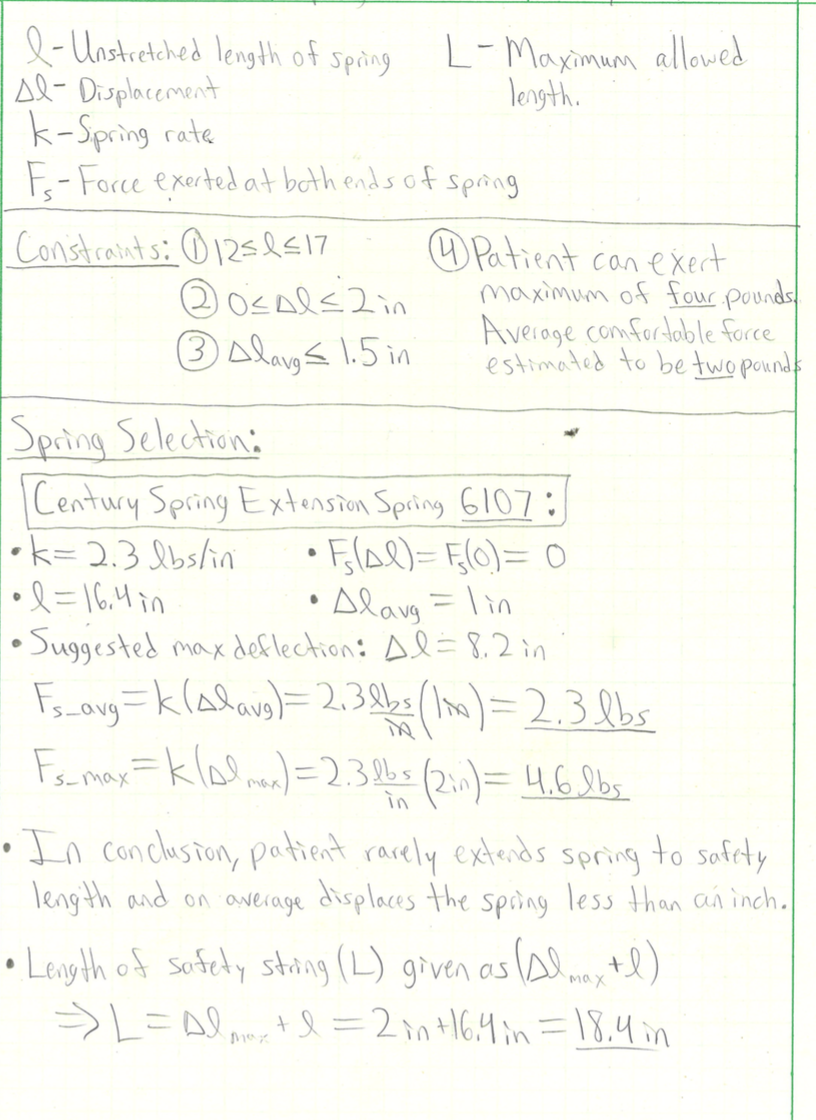 l - Unstretched length of spring
L - Maximum allowed length.
Δl - Displacement
k - Spring rate
Fs - Force exerted at both ends of spring
Constraints: ① 12 ≤ l ≤ 17
② 0 ≤ Δl ≤ 2 in
③ Δlavg ≤ 1.5 in
④ Patient can exert
maximum of four pounds.
Average comfortable force
estimated to be two pounds
Spring Selection:
Century Spring Extension Spring 6107:
• k = 2.3 lbs/in
• Fs(Δl) = Fs(0) = 0
• l = 16.4 in
• Δlavg = 1 in
• Suggested max deflection: Δl = 8.2 in
Fs_avg = k(Δlavg) = 2.3 lbs/in (1in) = 2.3 lbs
Fs_max = k(Δlmax) = 2.3 lbs/in (2in) = 4.6 lbs
• In conclusion, patient rarely extends spring to safety
length and on average displaces the spring less than an inch.
• Length of safety string (L) given as (Δlmax + l)
⇒ L = Δlmax + l = 2 in + 16.4 in = 18.4 in